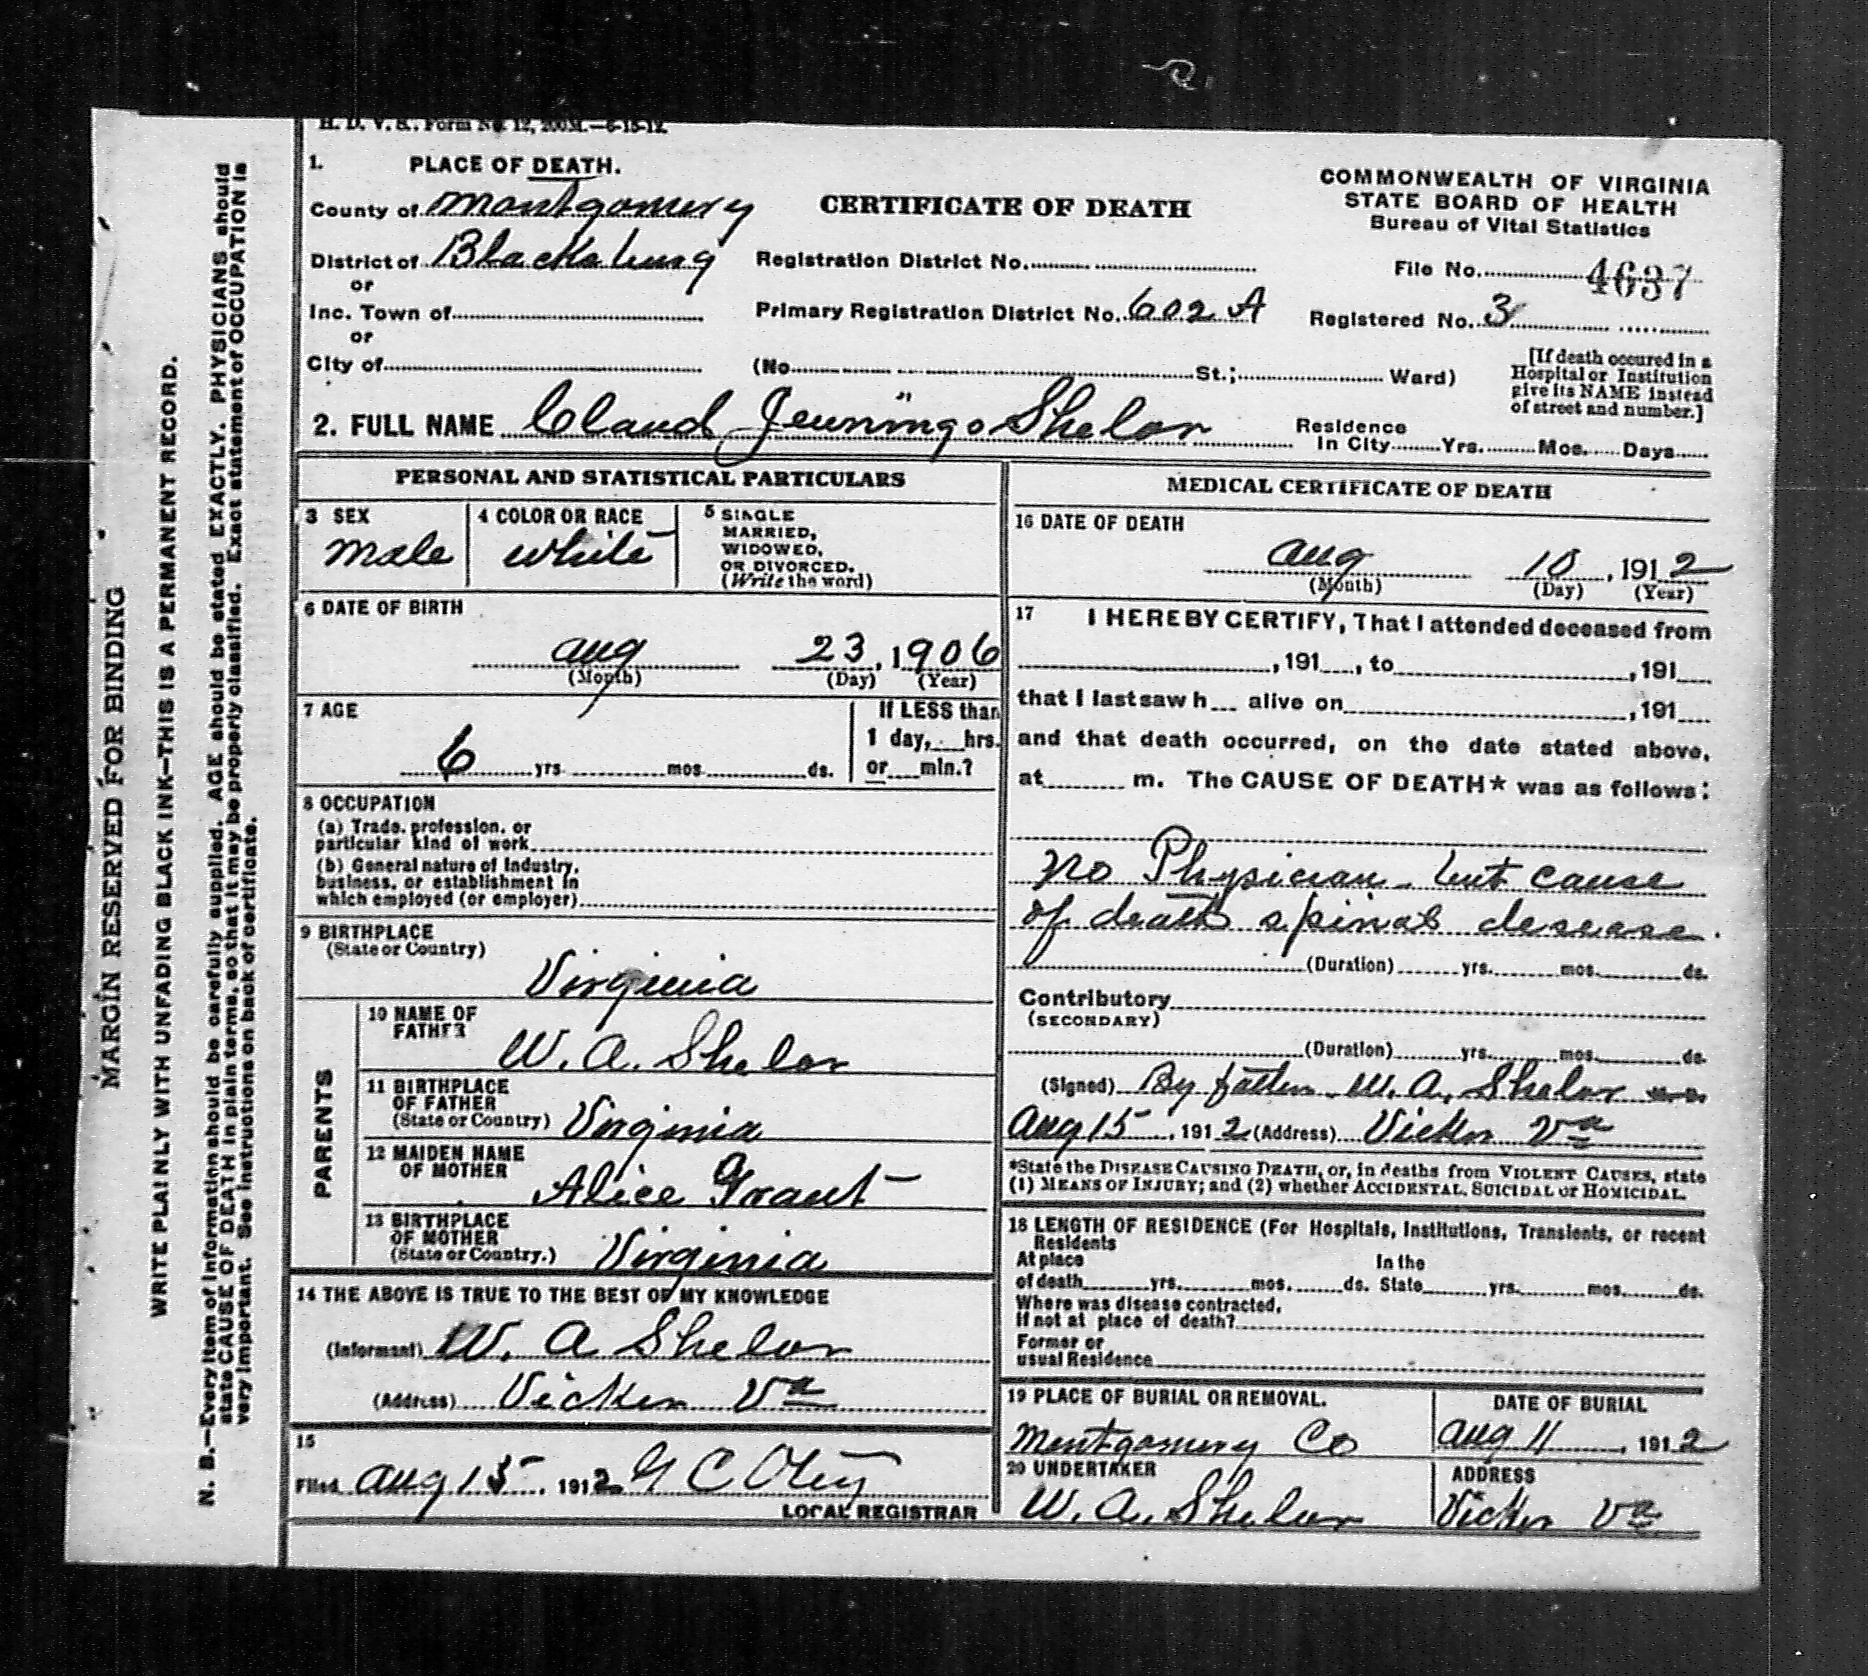 H. D. V. S. Form No. 12, 200M.—6-15-12.
1. PLACE OF DEATH.
County of Montgomery
District of Blacksburg
or
Inc. Town of
or
City of
CERTIFICATE OF DEATH
Registration District No.
Primary Registration District No. 602 A
(No. St.; Ward)
COMMONWEALTH OF VIRGINIA
STATE BOARD OF HEALTH
Bureau of Vital Statistics
File No. 4637
Registered No. 3
[If death occured in a
Hospital or Institution
give its NAME instead
of street and number.]
2. FULL NAME Claud Jennings Shelor
Residence
In City Yrs. Mos. Days
PERSONAL AND STATISTICAL PARTICULARS
3 SEX
Male
4 COLOR OR RACE
White
5 SINGLE
MARRIED,
WIDOWED,
OR DIVORCED.
(Write the word)
6 DATE OF BIRTH
Aug 23, 1906
(Month) (Day) (Year)
7 AGE
6 yrs mos ds.
If LESS than
1 day, hrs.
or min.?
8 OCCUPATION
(a) Trade, profession, or
particular kind of work
(b) General nature of Industry,
business, or establishment in
which employed (or employer)
9 BIRTHPLACE
(State or Country)
Virginia
PARENTS
10 NAME OF
FATHER
W. A. Shelor
11 BIRTHPLACE
OF FATHER
(State or Country) Virginia
12 MAIDEN NAME
OF MOTHER
Alice Grant
13 BIRTHPLACE
OF MOTHER
(State or Country.) Virginia
14 THE ABOVE IS TRUE TO THE BEST OF MY KNOWLEDGE
(Informant) W. A Shelor
(Address) Vicker Va
15
Filed Aug 15, 1912 G C Otey
LOCAL REGISTRAR
MEDICAL CERTIFICATE OF DEATH
16 DATE OF DEATH
Aug 10, 1912
(Month) (Day) (Year)
17 I HEREBY CERTIFY, That I attended deceased from
, 191 , to , 191
that I last saw h alive on , 191
and that death occurred, on the date stated above,
at m. The CAUSE OF DEATH* was as follows:
No Physician - but cause
of death spinal desease.
(Duration) yrs. mos. ds.
Contributory
(SECONDARY)
(Duration) yrs. mos. ds.
(Signed) By father W. A. Shelor M. D.
Aug 15, 1912 (Address) Vicker Va
*State the DISEASE CAUSING DEATH, or, in deaths from VIOLENT CAUSES, state
(1) MEANS OF INJURY; and (2) whether ACCIDENTAL, SUICIDAL or HOMICIDAL.
18 LENGTH OF RESIDENCE (For Hospitals, Institutions, Transients, or recent
Residents
At place In the
of death yrs. mos. ds. State yrs. mos. ds.
Where was disease contracted,
If not at place of death?
Former or
usual Residence
19 PLACE OF BURIAL OR REMOVAL.
Montgomery Co
DATE OF BURIAL
Aug 11, 1912
20 UNDERTAKER
W. A. Shelor
ADDRESS
Vicker Va
MARGIN RESERVED FOR BINDING
WRITE PLAINLY WITH UNFADING BLACK INK—THIS IS A PERMANENT RECORD.
N. B.—Every item of information should be carefully supplied. AGE should be stated EXACTLY. PHYSICIANS should
state CAUSE OF DEATH in plain terms, so that it may be properly classified. Exact statement of OCCUPATION is
very important. See instructions on back of certificate.